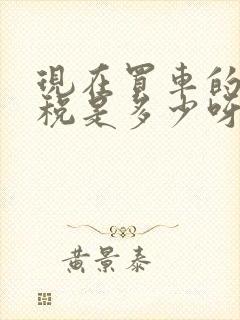 現在買車的
稅是多少呀
黃景泰